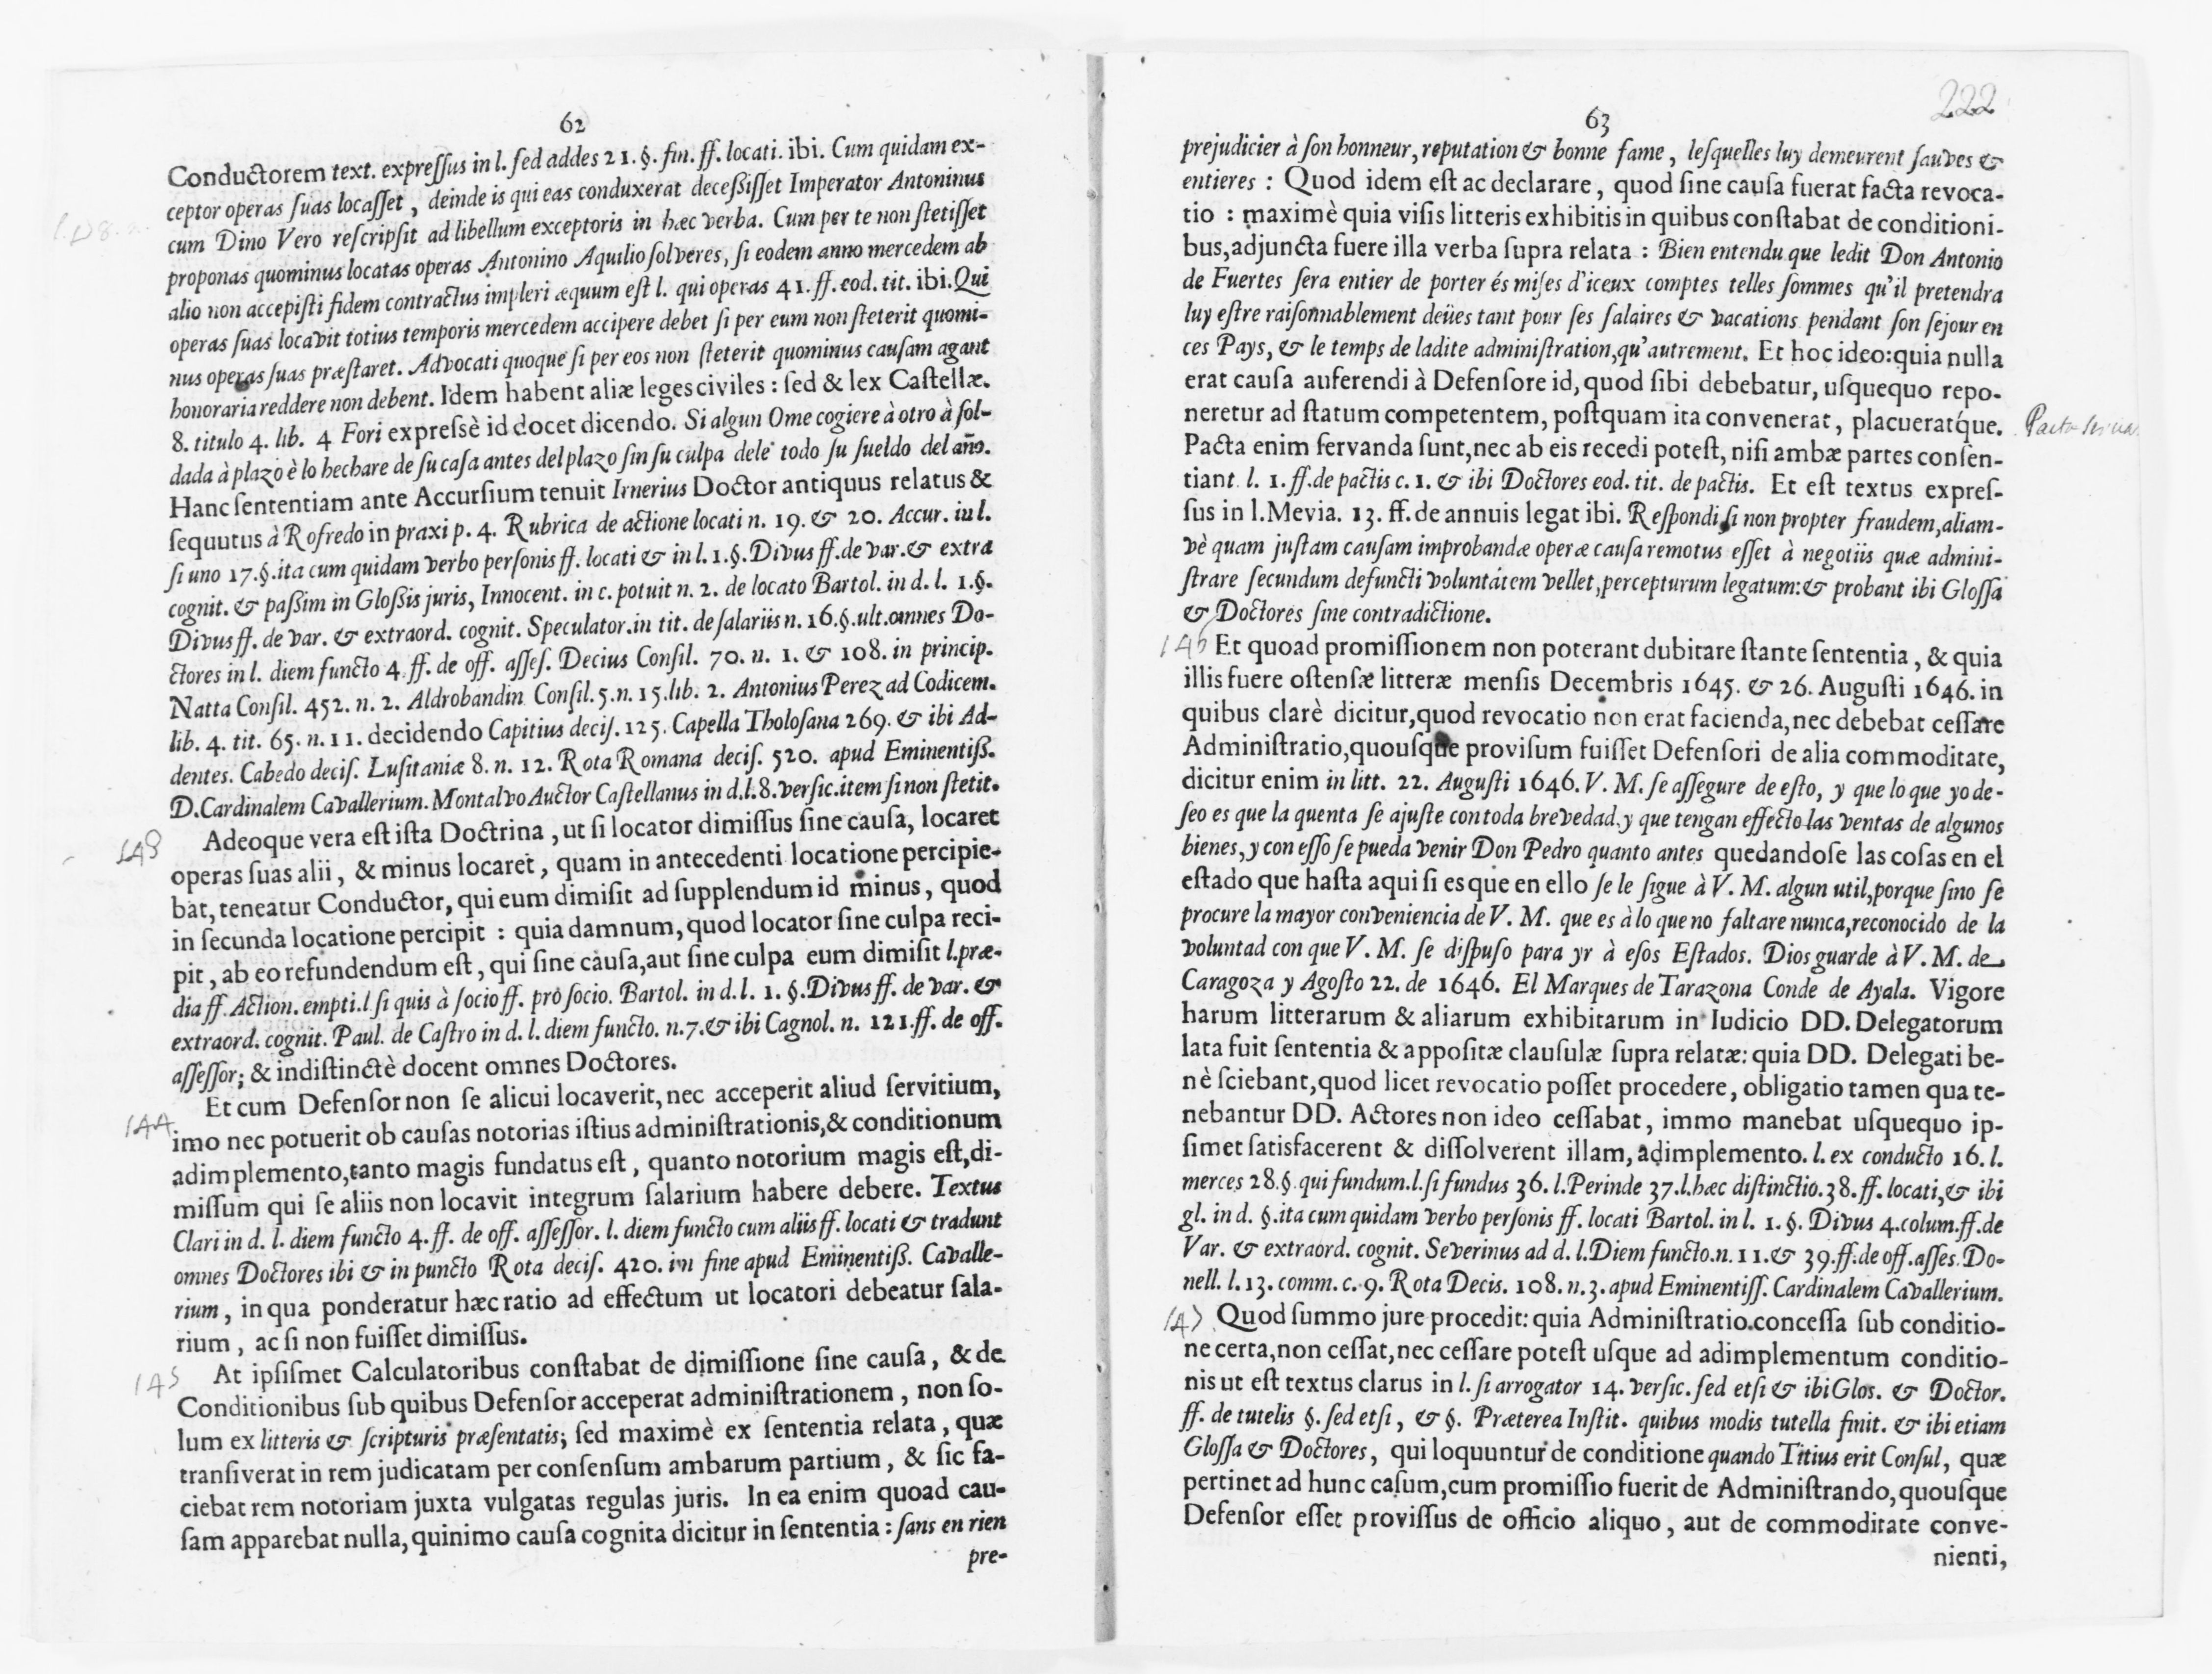 62
Conductorem text. expreſſus in l. ſed addes 21. §. fin. ff. locati. ibi. Cum quidam ex-
ceptor operas ſuas locaſſet, deinde is qui eas conduxerat deceßiſſet Imperator Antoninus
cum Dino Vero reſcripſit ad libellum exceptoris in hæc verba. Cum per te non ſtetiſſet
proponas quominus locatas operas Antonino Aquilio ſolveres, ſi eodem anno mercedem ab
alio non accepiſti fidem contractus impleri æquum eſt l. qui operas 41. ff. eod. tit. ibi. Qui
operas ſuas locavit totius temporis mercedem accipere debet ſi per eum non ſteterit quomi-
nus operas ſuas præſtaret. Advocati quoque ſi per eos non ſteterit quominus cauſam agant
honoraria reddere non debent. Idem habent aliæ leges civiles : ſed & lex Caſtellæ.
8. titulo 4. lib. 4 Fori expreſsè id docet dicendo. Si algun Ome cogiere à otro à ſol-
dada à plazo è lo hechare de ſu caſa antes del plazo ſin ſu culpa dele todo ſu ſueldo del año.
Hanc ſententiam ante Accurſium tenuit Irnerius Doctor antiquus relatus &
ſequutus à Rofredo in praxi p. 4. Rubrica de actione locati n. 19. & 20. Accur. in l.
ſi uno 17. §. ita cum quidam verbo perſonis ff. locati & in l. 1. §. Divus ff. de var. & extra
cognit. & paßim in Gloßis juris, Innocent. in c. potuit n. 2. de locato Bartol. in d. l. 1. §.
Divus ff. de var. & extraord. cognit. Speculator. in tit. de ſalariis n. 16. §. ult. omnes Do-
ctores in l. diem functo 4. ff. de off. aſſeſ. Decius Conſil. 70. n. 1. & 108. in princip.
Natta Conſil. 452. n. 2. Aldrobandin Conſil. 5. n. 15. lib. 2. Antonius Perez ad Codicem.
lib. 4. tit. 65. n. 11. decidendo Capitius deciſ. 125. Capella Tholoſana 269. & ibi Ad-
dentes. Cabedo deciſ. Luſitaniæ 8. n. 12. Rota Romana deciſ. 520. apud Eminentiß.
D. Cardinalem Cavallerium. Montalvo Auctor Caſtellanus in d. l. 8. verſic. item ſi non ſtetit.
143 Adeoque vera eſt iſta Doctrina, ut ſi locator dimiſſus ſine cauſa, locaret
operas ſuas alii, & minus locaret, quam in antecedenti locatione percipie-
bat, teneatur Conductor, qui eum dimiſit ad ſupplendum id minus, quod
in ſecunda locatione percipit : quia damnum, quod locator ſine culpa reci-
pit, ab eo refundendum eſt, qui ſine cauſa, aut ſine culpa eum dimiſit l. præ-
dia ff. Action. empti. l ſi quis à ſocio ff. pro ſocio. Bartol. in d. l. 1. §. Divus ff. de var. &
extraord. cognit. Paul. de Caſtro in d. l. diem functo. n. 7. & ibi Cagnol. n. 121. ff. de off.
aſſeſſor; & indiſtinctè docent omnes Doctores.
144 Et cum Defenſor non ſe alicui locaverit, nec acceperit aliud ſervitium,
imo nec potuerit ob cauſas notorias iſtius adminiſtrationis, & conditionum
adimplemento, tanto magis fundatus eſt, quanto notorium magis eſt, di-
miſſum qui ſe aliis non locavit integrum ſalarium habere debere. Textus
Clari in d. l. diem functo 4. ff. de off. aſſeſſor. l. diem functo cum aliis ff. locati & tradunt
omnes Doctores ibi & in puncto Rota deciſ. 420. in fine apud Eminentiß. Cavalle-
rium, in qua ponderatur hæc ratio ad effectum ut locatori debeatur ſala-
rium, ac ſi non fuiſſet dimiſſus.
145 At ipſiſmet Calculatoribus conſtabat de dimiſſione ſine cauſa, & de
Conditionibus ſub quibus Defenſor acceperat adminiſtrationem, non ſo-
lum ex litteris & ſcripturis præſentatis; ſed maximè ex ſententia relata, quæ
tranſiverat in rem judicatam per conſenſum ambarum partium, & ſic fa-
ciebat rem notoriam juxta vulgatas regulas juris. In ea enim quoad cau-
ſam apparebat nulla, quinimo cauſa cognita dicitur in ſententia : ſans en rien
pre-
222
63
prejudicier à ſon honneur, reputation & bonne fame, leſquelles luy demeurent ſauves &
entieres : Quod idem eſt ac declarare, quod ſine cauſa fuerat facta revoca-
tio : maximè quia viſis litteris exhibitis in quibus conſtabat de conditioni-
bus, adjuncta fuere illa verba ſupra relata : Bien entendu que ledit Don Antonio
de Fuertes ſera entier de porter és miſes d'iceux comptes telles ſommes qu'il pretendra
luy eſtre raiſonnablement deües tant pour ſes ſalaires & vacations pendant ſon ſejour en
ces Pays, & le temps de ladite adminiſtration, qu'autrement. Et hoc ideo: quia nulla
erat cauſa auferendi à Defenſore id, quod ſibi debebatur, uſquequo repo-
neretur ad ſtatum competentem, poſtquam ita convenerat, placueratque.
Pacta enim ſervanda ſunt, nec ab eis recedi poteſt, niſi ambæ partes conſen-
tiant l. 1. ff. de pactis c. 1. & ibi Doctores eod. tit. de pactis. Et eſt textus expreſ-
ſus in l. Mevia. 13. ff. de annuis legat ibi. Reſpondi ſi non propter fraudem, aliam-
vè quam juſtam cauſam improbandæ operæ cauſa remotus eſſet à negotiis quæ admini-
ſtrare ſecundum defuncti voluntatem vellet, percepturum legatum: & probant ibi Gloſſa
& Doctores ſine contradictione.
146 Et quoad promiſſionem non poterant dubitare ſtante ſententia, & quia
illis fuere oſtenſæ litteræ menſis Decembris 1645. & 26. Auguſti 1646. in
quibus clarè dicitur, quod revocatio non erat facienda, nec debebat ceſſare
Adminiſtratio, quouſque proviſum fuiſſet Defenſori de alia commoditate,
dicitur enim in litt. 22. Auguſti 1646. V. M. ſe aſſegure de eſto, y que lo que yo de-
ſeo es que la quenta ſe ajuſte con toda brevedad, y que tengan effecto las ventas de algunos
bienes, y con eſſo ſe pueda venir Don Pedro quanto antes quedandoſe las coſas en el
eſtado que haſta aqui ſi es que en ello ſe le ſigue à V. M. algun util, porque ſino ſe
procure la mayor conveniencia de V. M. que es à lo que no faltare nunca, reconocido de la
voluntad con que V. M. ſe diſpuſo para yr à eſos Eſtados. Dios guarde à V. M. de
Caragoza y Agoſto 22. de 1646. El Marques de Tarazona Conde de Ayala. Vigore
harum litterarum & aliarum exhibitarum in Iudicio DD. Delegatorum
lata fuit ſententia & appoſitæ clauſulæ ſupra relatæ: quia DD. Delegati be-
nè ſciebant, quod licet revocatio poſſet procedere, obligatio tamen qua te-
nebantur DD. Actores non ideo ceſſabat, immo manebat uſquequo ip-
ſimet ſatisfacerent & diſſolverent illam, adimplemento. l. ex conducto 16. l.
merces 28. §. qui fundum. l. ſi fundus 36. l. Perinde 37. l. hæc diſtinctio. 38. ff. locati, & ibi
gl. in d. §. ita cum quidam verbo perſonis ff. locati Bartol. in l. 1. §. Divus 4. colum. ff. de
Var. & extraord. cognit. Severinus ad d. l. Diem functo. n. 11. & 39. ff. de off. aſſes. Do-
nell. l. 13. comm. c. 9. Rota Decis. 108. n. 3. apud Eminentiſſ. Cardinalem Cavallerium.
147 Quod ſummo jure procedit: quia Adminiſtratio. conceſſa ſub conditio-
ne certa, non ceſſat, nec ceſſare poteſt uſque ad adimplementum conditio-
nis ut eſt textus clarus in l. ſi arrogator 14. verſic. ſed etſi & ibi Glos. & Doctor.
ff. de tutelis §. ſed etſi, & §. Præterea Inſtit. quibus modis tutella finit. & ibi etiam
Gloſſa & Doctores, qui loquuntur de conditione quando Titius erit Conſul, quæ
pertinet ad hunc caſum, cum promiſſio fuerit de Adminiſtrando, quouſque
Defenſor eſſet proviſſus de officio aliquo, aut de commoditate conve-
nienti,